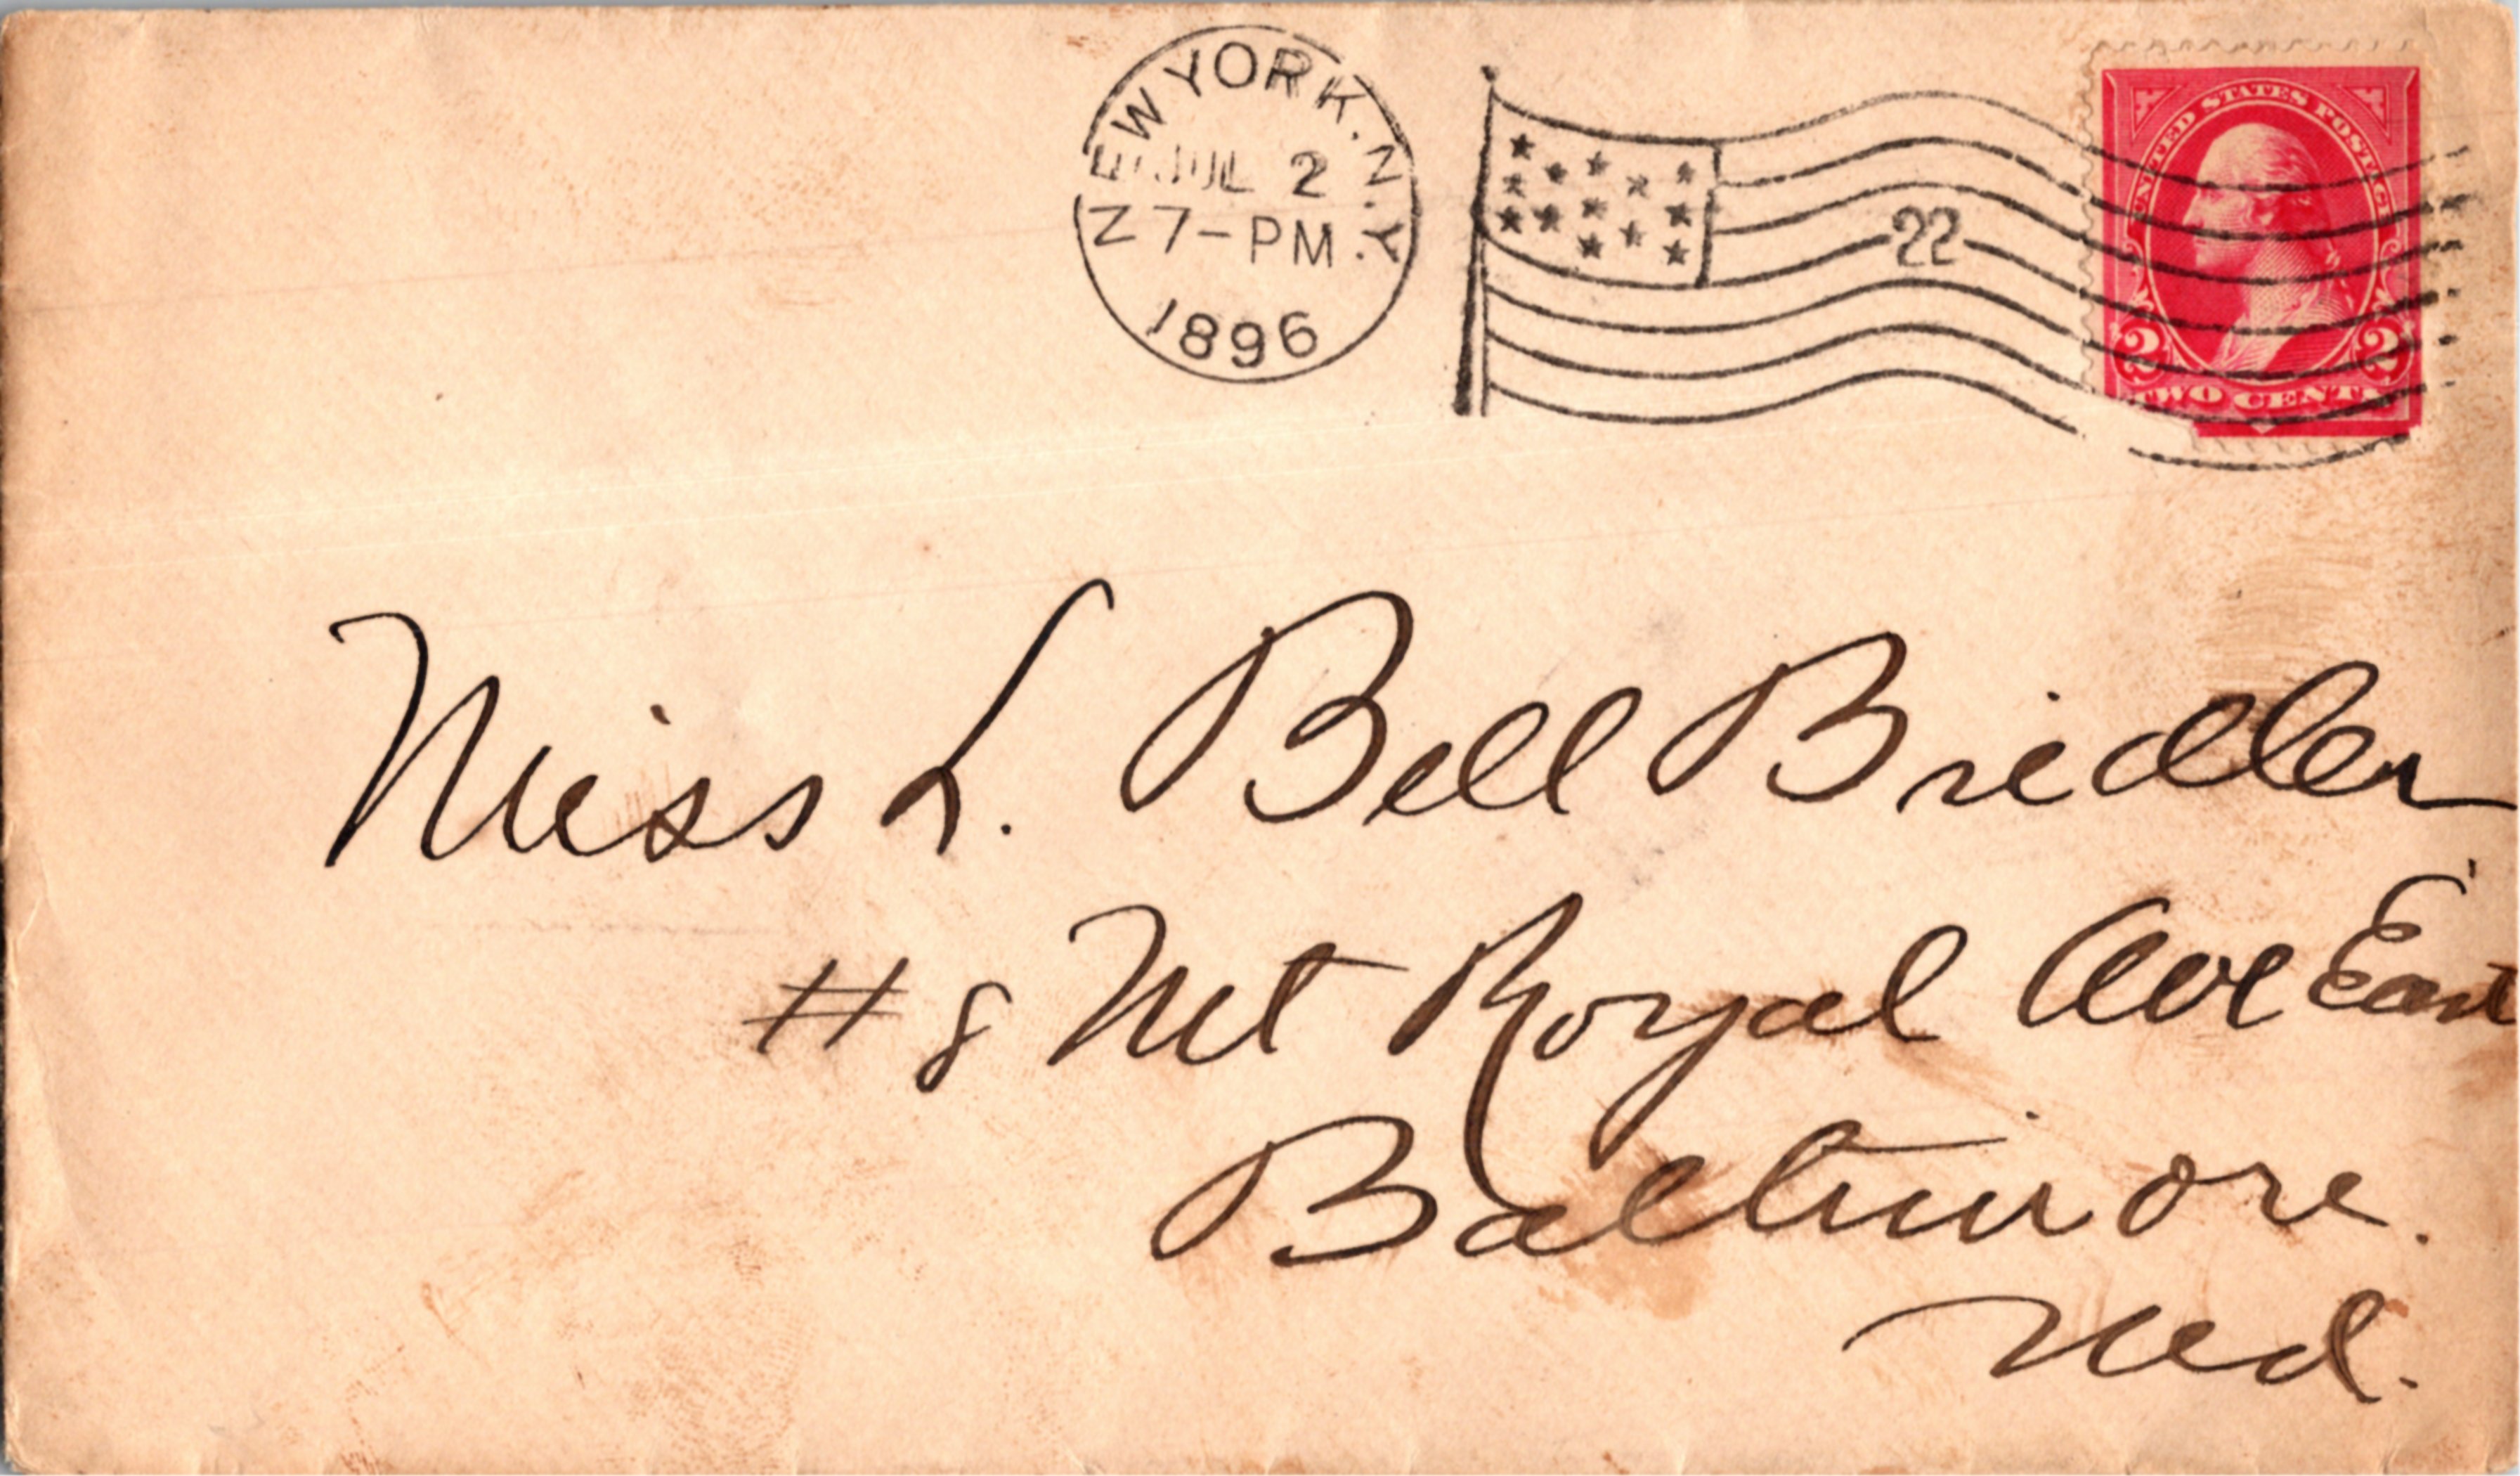 NEW YORK. N.Y.
JUL 2
7-PM
1896
22
UNITED STATES POSTAGE
2 2
TWO CENTS
Miss L. Bell Bridler
# 8 Mt Royal Ave East
Baltimore.
Md.